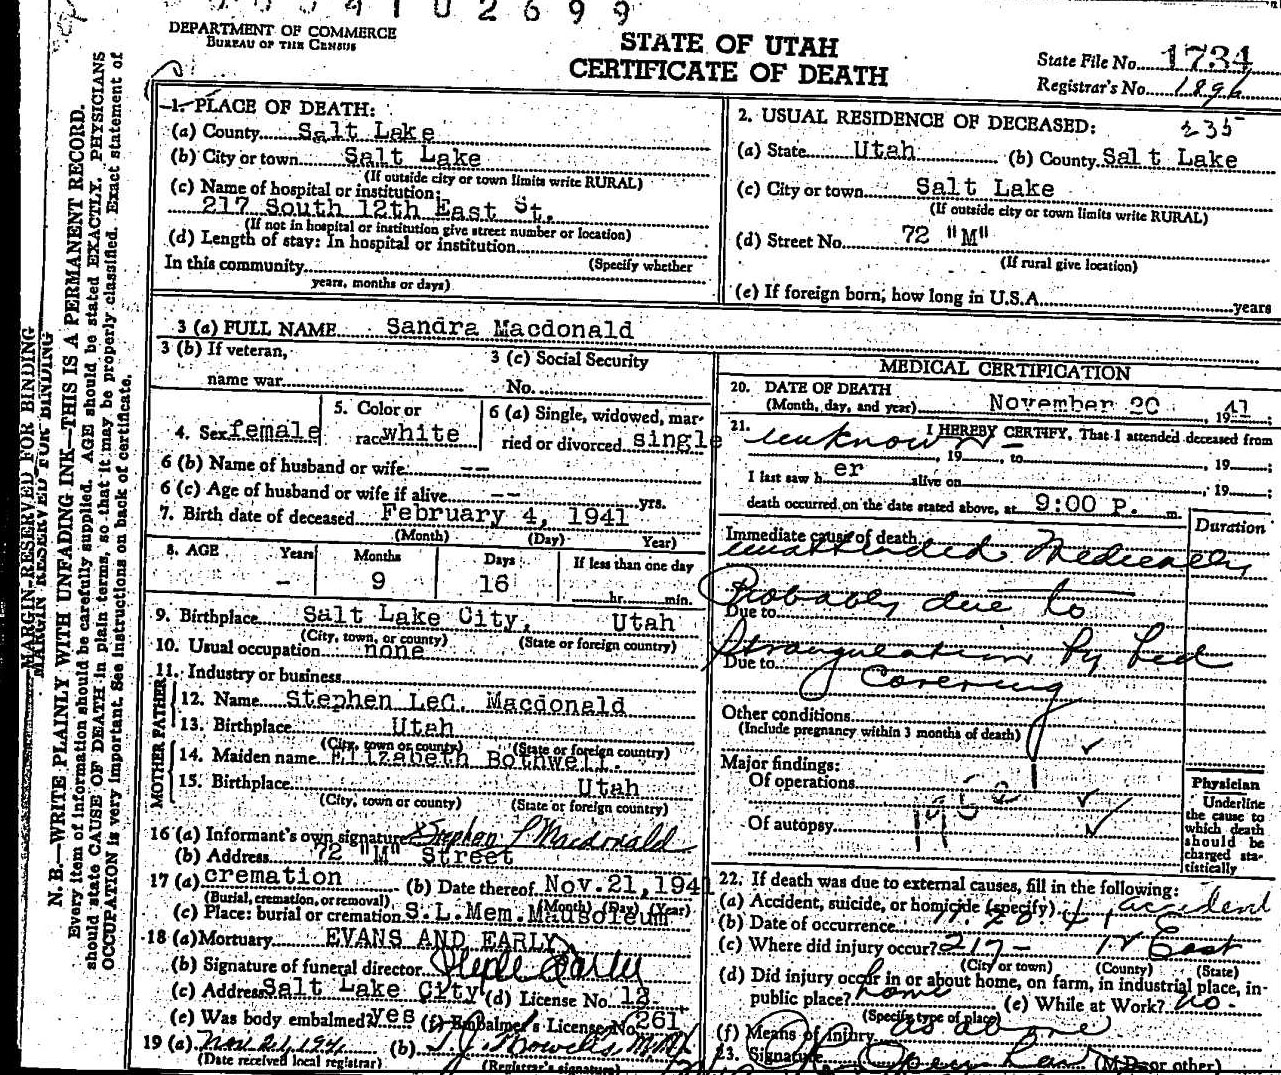 DEPARTMENT OF COMMERCE
BUREAU OF THE CENSUS
STATE OF UTAH
CERTIFICATE OF DEATH
State File No. 1734
Registrar's No. 1896
MARGIN RESERVED FOR BINDING
MARGIN RESERVED FOR BINDING
N. B.—WRITE PLAINLY WITH UNFADING INK—THIS IS A PERMANENT RECORD.
Every item of information should be carefully supplied. AGE should be stated EXACTLY. PHYSICIANS
should state CAUSE OF DEATH in plain terms, so that it may be properly classified. Exact statement of
OCCUPATION is very important. See instructions on back of certificate.
1. PLACE OF DEATH:
(a) County Salt Lake
(b) City or town Salt Lake
(If outside city or town limits write RURAL)
(c) Name of hospital or institution:
217 South 12th East St.
(If not in hospital or institution give street number or location)
(d) Length of stay: In hospital or institution
(Specify whether
In this community
years, months or days)
2. USUAL RESIDENCE OF DECEASED: 235
(a) State Utah (b) County Salt Lake
(c) City or town Salt Lake
(If outside city or town limits write RURAL)
(d) Street No. 72 "M"
(If rural give location)
(e) If foreign born, how long in U.S.A. years
3 (a) FULL NAME Sandra Macdonald
3 (b) If veteran,
name war
3 (c) Social Security
No.
4. Sex female
5. Color or
race white
6 (a) Single, widowed, mar-
ried or divorced single
6 (b) Name of husband or wife --
6 (c) Age of husband or wife if alive -- yrs.
7. Birth date of deceased February 4, 1941
(Month) (Day) (Year)
8. AGE Years Months Days If less than one day
- 9 16 hr. min.
9. Birthplace Salt Lake City, Utah
(City, town, or county) (State or foreign country)
10. Usual occupation none
11. Industry or business
FATHER
12. Name Stephen LeC. Macdonald
13. Birthplace Utah
(City, town or county) (State or foreign country)
MOTHER
14. Maiden name Elizabeth Bothwell.
15. Birthplace Utah
(City, town or county) (State or foreign country)
16 (a) Informant's own signature Stephen L Macdonald
(b) Address 72 "M" Street
17 (a) cremation (b) Date thereof Nov. 21, 1941
(Burial, cremation, or removal) (Month) (Day) (Year)
(c) Place: burial or cremation S.L.Mem.Mausoleum
18 (a) Mortuary EVANS AND EARLY
(b) Signature of funeral director
(c) Address Salt Lake City (d) License No. 12
(e) Was body embalmed? yes (f) Embalmer's License No. 261
19 (a) Nov 21, 1941 (b)
(Date received local registrar) (Registrar's signature)
MEDICAL CERTIFICATION
20. DATE OF DEATH
(Month, day, and year) November 20, 1941;
21. I HEREBY CERTIFY, That I attended deceased from
unknown, 19 , to , 19 ;
I last saw her alive on , 19 ;
death occurred on the date stated above, at 9:00 P. m.
Duration
Immediate cause of death
unattended Medically
Probably due to
Due to
Strangulation by bed
Due to
Covering
Other conditions
(Include pregnancy within 3 months of death)
Major findings:
Of operations
Of autopsy
Physician
Underline
the cause to
which death
should be
charged sta-
tistically
22. If death was due to external causes, fill in the following:
(a) Accident, suicide, or homicide (specify) accident
(b) Date of occurrence 11-20-41
(c) Where did injury occur? 217- 12 East
(City or town) (County) (State)
(d) Did injury occur in or about home, on farm, in industrial place, in
public place? home (e) While at Work? no.
(Specify type of place)
(f) Means of injury as above
23. Signature (M.D. or other)